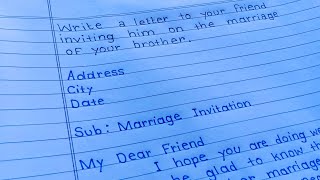 Write a letter to your friend
inviting him on the marriage
of your brother.
Address
City
Date
Sub: Marriage Invitation
My Dear Friend
I hope you are doing we
be glad to know th
r marriage